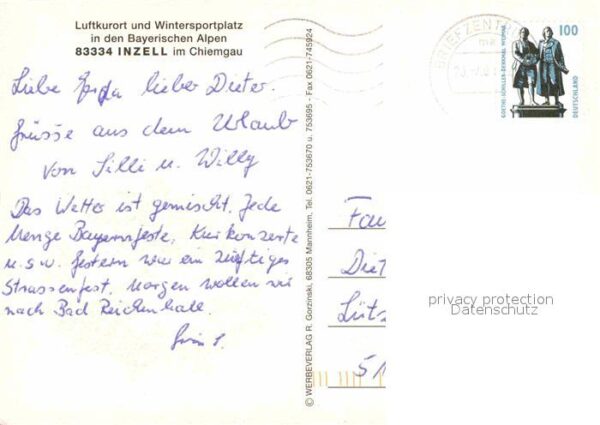 Luftkurort und Wintersportplatz
in den Bayerischen Alpen
83334 INZELL im Chiemgau
Liebe lieber Dieter.
Grüsse aus dem Urlaub
von Silli u. Willy
Das Wetter ist gemischt. Jede
Menge Bayernfeste, Kurkonzerte
u.s.w. Gestern war ein zünftiges
Strassenfest. Morgen wollen wir
nach Bad Reichenhall.
© WERBEVERLAG R. Gorzinski, 68305 Mannheim, Tel. 0621-753670 u. 753695 - Fax 0621-745924
BRIEFZENTRUM
100
GOETHE-SCHILLER-DENKMAL WEIMAR
DEUTSCHLAND
Fam
Diet
Lütz
51
privacy protection
Datenschutz